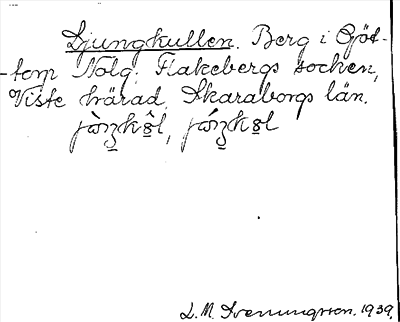 Ljungkullen. Berg i Gjöt-
-torp Nolg. Flakebergs socken,
Viste härad, Skaraborgs län.
L. M. Svenungsson. 1939.